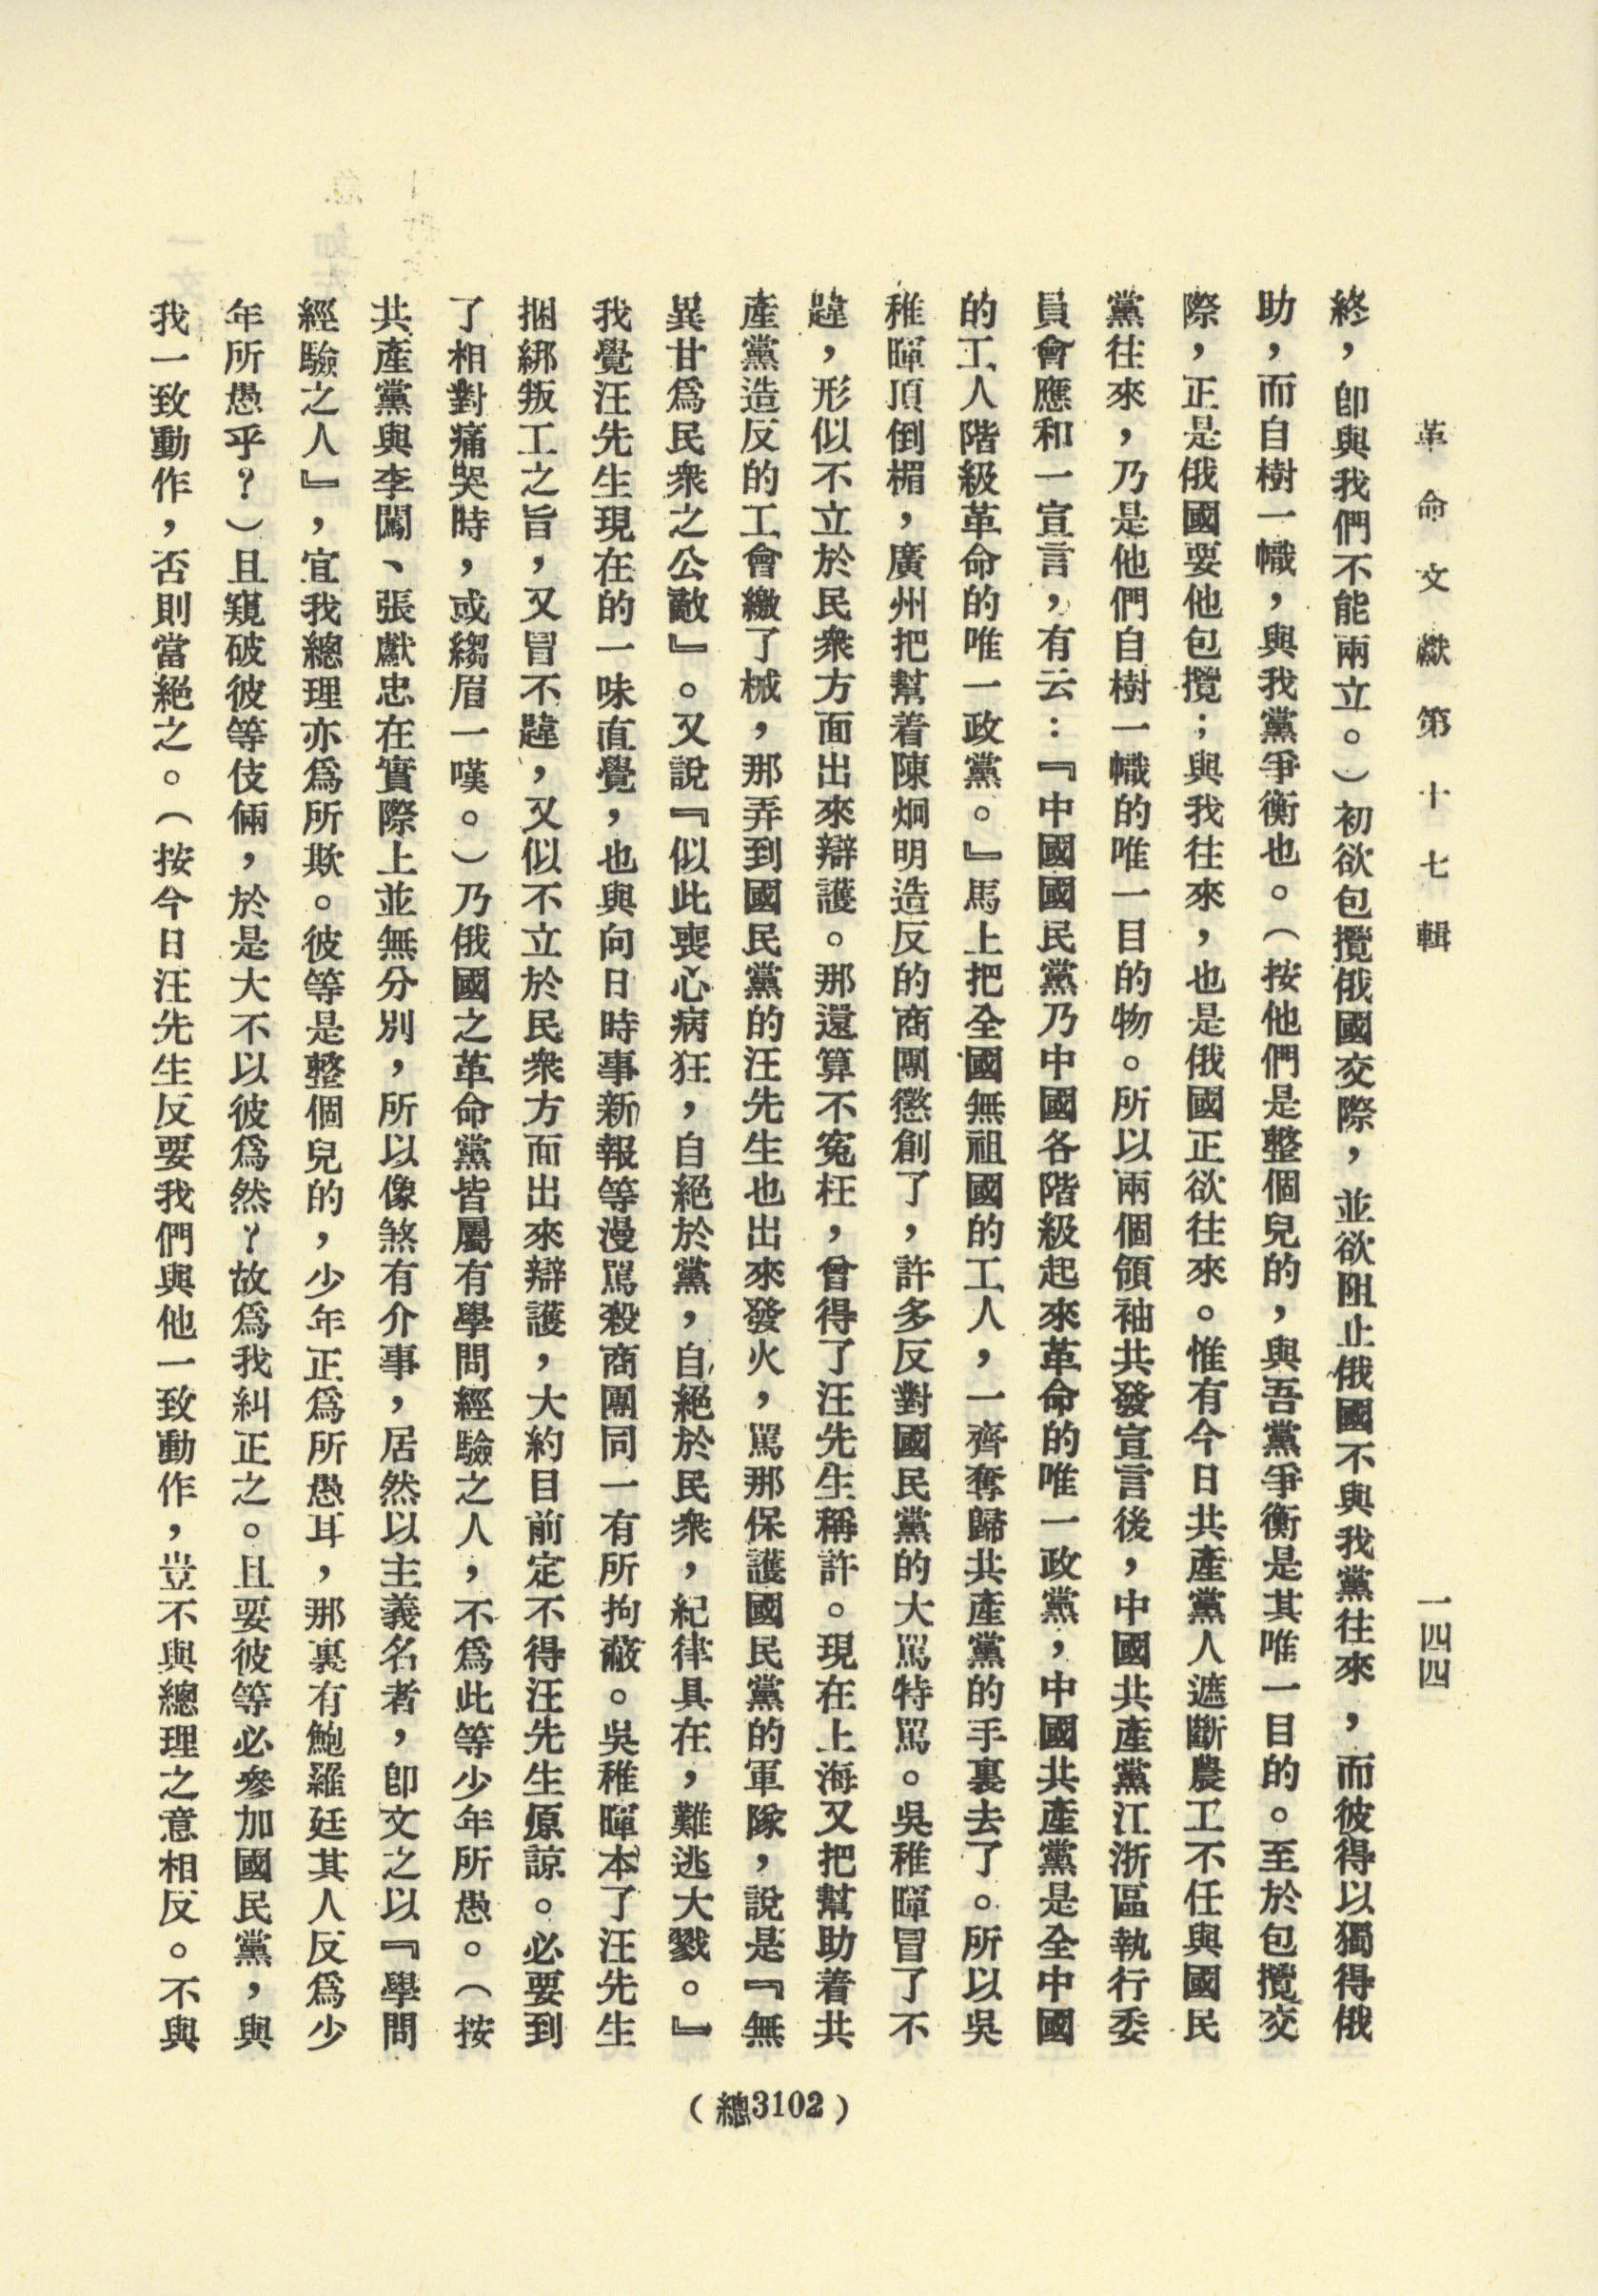 革命文獻第十七輯
一四四
終，卽與我們不能兩立。）初欲包攬俄國交際，並欲阻止俄國不與我黨往來，而彼得以獨得俄
助，而自樹一幟，與我黨爭衡也。（按他們是整個兒的，與吾黨爭衡是其唯一目的。至於包攬交
際，正是俄國要他包攬；與我往來，也是俄國正欲往來。惟有今日共產黨人遮斷農工不任與國民
黨往來，乃是他們自樹一幟的唯一目的物。所以兩個領袖共發宣言後，中國共產黨江浙區執行委
員會應和一宣言，有云：『中國國民黨乃中國各階級起來革命的唯一政黨，中國共產黨是全中國
的工人階級革命的唯一政黨。』馬上把全國無祖國的工人，一齊奪歸共產黨的手裏去了。所以吳
稚暉頂倒楣，廣州把幫着陳炯明造反的商團懲創了，許多反對國民黨的大駡特駡。吳稚暉冒了不
韙，形似不立於民衆方面出來辯護。那還算不寃枉，曾得了汪先生稱許。現在上海又把幫助着共
產黨造反的工會繳了械，那弄到國民黨的汪先生也出來發火，駡那保護國民黨的軍隊，說是『無
異甘爲民衆之公敵』。又說『似此喪心病狂，自絕於黨，自絕於民衆，紀律具在，難逃大戮。』
我覺汪先生現在的一味直覺，也與向日時事新報等漫駡殺商團同一有所拘蔽。吳稚暉本了汪先生
捆綁叛工之旨，又冒不韙，又似不立於民衆方面出來辯護，大約目前定不得汪先生原諒。必要到
了相對痛哭時，或縐眉一嘆。）乃俄國之革命黨皆屬有學問經驗之人，不爲此等少年所愚。（按
共產黨與李闖、張獻忠在實際上並無分別，所以像煞有介事，居然以主義名者，卽文之以『學問
經驗之人』，宜我總理亦爲所欺。彼等是整個兒的，少年正爲所愚耳，那裏有鮑羅廷其人反爲少
年所愚乎？）且窺破彼等伎倆，於是大不以彼爲然？故爲我糾正之。且要彼等必參加國民黨，與
我一致動作，否則當絕之。（按今日汪先生反要我們與他一致動作，豈不與總理之意相反。不與
（總3102）